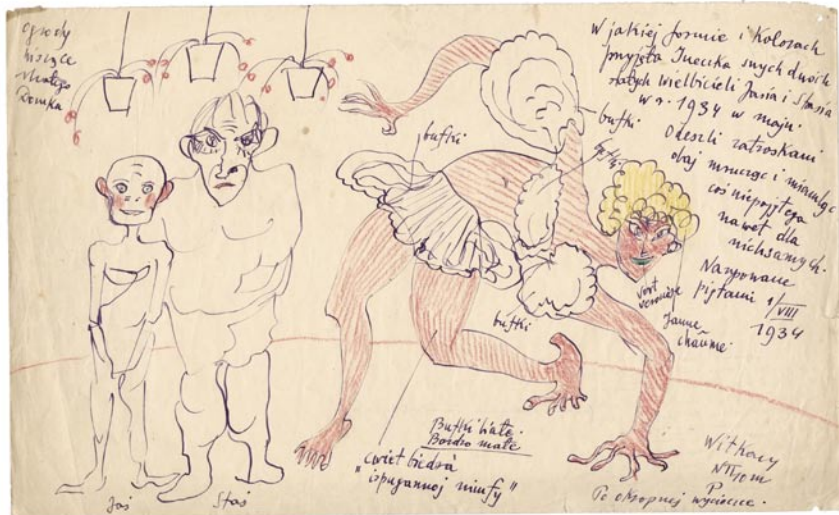 ogrody
wiszące
małego
Domka
W jakiej formie i kolorach
przyjęła Ineczka swych dwóch
stałych wielbicieli Jasia i Stasia
w r. 1934 w maju.
Odeszli zatroskani
obaj mrucząc i miamląc
coś niepojętego
nawet dla
nich samych.
Narysowane
piętami 1/VIII
1934
bufki
bufki
bufki
vert
veronèse
Jaune
chaume
Bufki białe.
Bardzo małe
"cwiet biedra
ispugannoj nimfy"
Jaś
Staś
Witkacy
Po okropnej wycieczce.